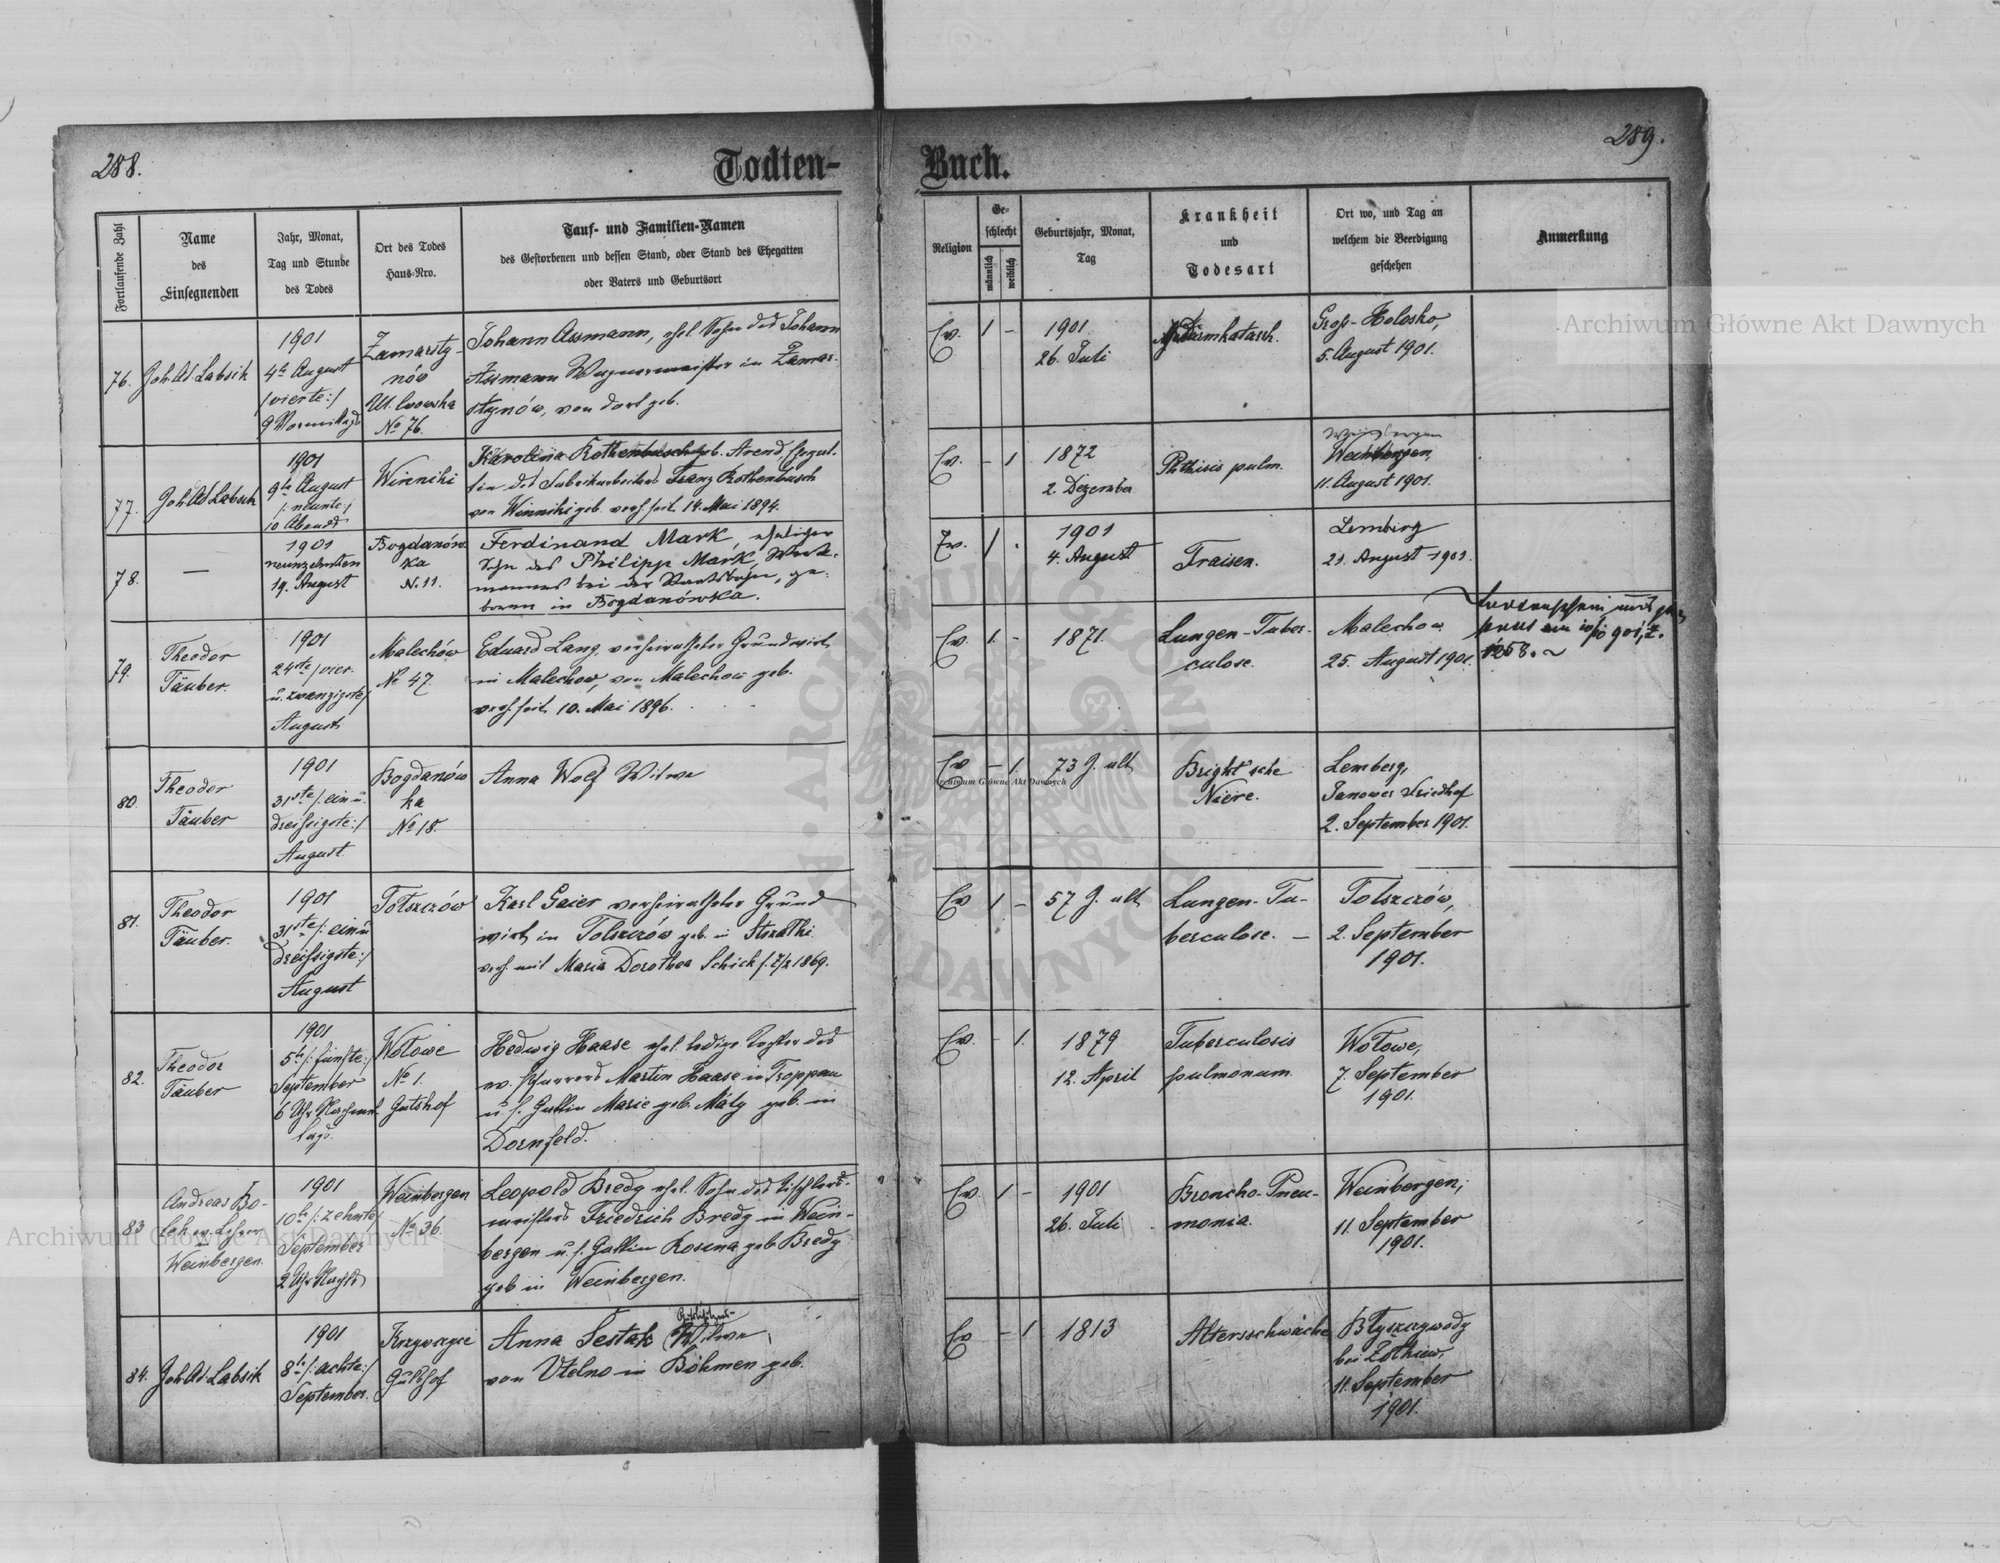 288.
Todten-
Fortlaufende Zahl
Name
des
Einsegnenden
Jahr, Monat,
Tag und Stunde
des Todes
Ort des Todes
Haus-Nro.
Tauf- und Familien-Namen
des Gestorbenen und dessen Stand, oder Stand des Ehegatten
oder Vaters und Geburtsort
76.
Joh. Ad. Labsik
1901
4te August
/vierte:/
9 Vormittags
Zamarsty-
nów
Ul. lwowska
No 76.
Johann Assmann, ehel. Sohn des Johann
Assmann Wagnermeister in Zamar-
stynów, von dort geb.
77.
Joh. Ad. Labsik
1901
9te August
/:neunte:/
10 Abends
Winniki
Karolina Rothenbusch geb. Arend, Ehegat-
tin des Fabriksarbeiters Franz Rothenbusch
von Winniki geb. verh. seit 14. Mai 1894.
78.
—
1901
neunzehnten
19. August
Bogdanów-
ka
N. 11.
Ferdinand Mark, ehelicher
Sohn des Philipp Mark, Werk-
mannes bei der Staatsbahn, ge-
boren in Bogdanówka.
79.
Theodor
Täuber.
1901
24ste /vier
u. zwanzigste/
August
Malechów
No 47.
Eduard Lang, verheiratheter Grundwirth
in Malechow, von Malechow geb.
verh. seit 10. Mai 1896.
80.
Theodor
Täuber
1901
31ste /:ein u.
dreissigste:/
August
Bogdanów
ka
No 18.
Anna Wolf Witwe
81.
Theodor
Täuber.
1901
31ste /:ein u
dreissigste:/
August
Tołszczów
Karl Gaier verheiratheter Grund
wirth in Tołszczów geb. in
verh. mit Maria Dorothea Schick 1869.
82.
Theodor
Täuber
1901
5te /:fünfte:/
September
6 Uhr Nachmit
tags.
Wołowe
No 1.
Gutshof
Hedwig Haase ehel. ledige Tochter des
ev. Pfarrers Martin Haase in Troppau
u. s. Gattin Marie geb. geb. in
Dornfeld.
83
Andreas Bo-
lek ev. Lehrer
Weinbergen.
1901
10te /:zehnte/
September
2 Uhr Nachts
Weinbergen
No 36.
Leopold Bredy ehel. Sohn des Tischler-
meisters Friedrich Bredy in Wein-
bergen u. s. Gattin Rosina geb. Bredy
geb. in Weinbergen.
84.
Joh. Ad. Labsik
1901
8te /:achte:/
September.
Gutshof
Anna Sestak Witwe,
von Utelno in Böhmen geb.
289.
Buch.
Religion
Ge-
schlecht
männlich
weiblich
Geburtsjahr, Monat,
Tag
Krankheit
und
Todesart
Ort wo, und Tag an
welchem die Beerdigung
geschehen
Anmerkung
Ev.
1
–
1901
26. Juli
Darmkatarrh.
Gross-Holosko,
5. August 1901.
Ev.
–
1
1872
2. Dezember
Phthisis pulm.
Weinbergen
Weinbergen,
11. August 1901.
Ev.
1
.
1901
4. August
Fraisen.
Lemberg
21. August 1901.
Ev.
1.
–
1871.
Lungen-Tuber-
culose.
Malechow
25. August 1901.
Ev
–
1.
73 J. alt
Bright'sche
Niere.
Lemberg,
Janower Friedhof
2. September 1901.
Ev
1
–
57 J. alt
Lungen-Tu-
berculose. –
Tołszczów,
2. September
1901.
Ev.
–
1.
1879
12. April
Tuberculosis
pulmonum
Wołowe,
7. September
1901.
Ev.
1
–
1901
26. Juli
Broncho-Pneu-
monia.
Weinbergen,
11. September
1901.
Ev
–
1
1813
Altersschwäche
Błyszczywody
bei Zołkiew,
11. September
1901.
Archiwum Główne Akt Dawnych
Archiwum Główne Akt Dawnych
Archiwum Główne Akt Dawnych